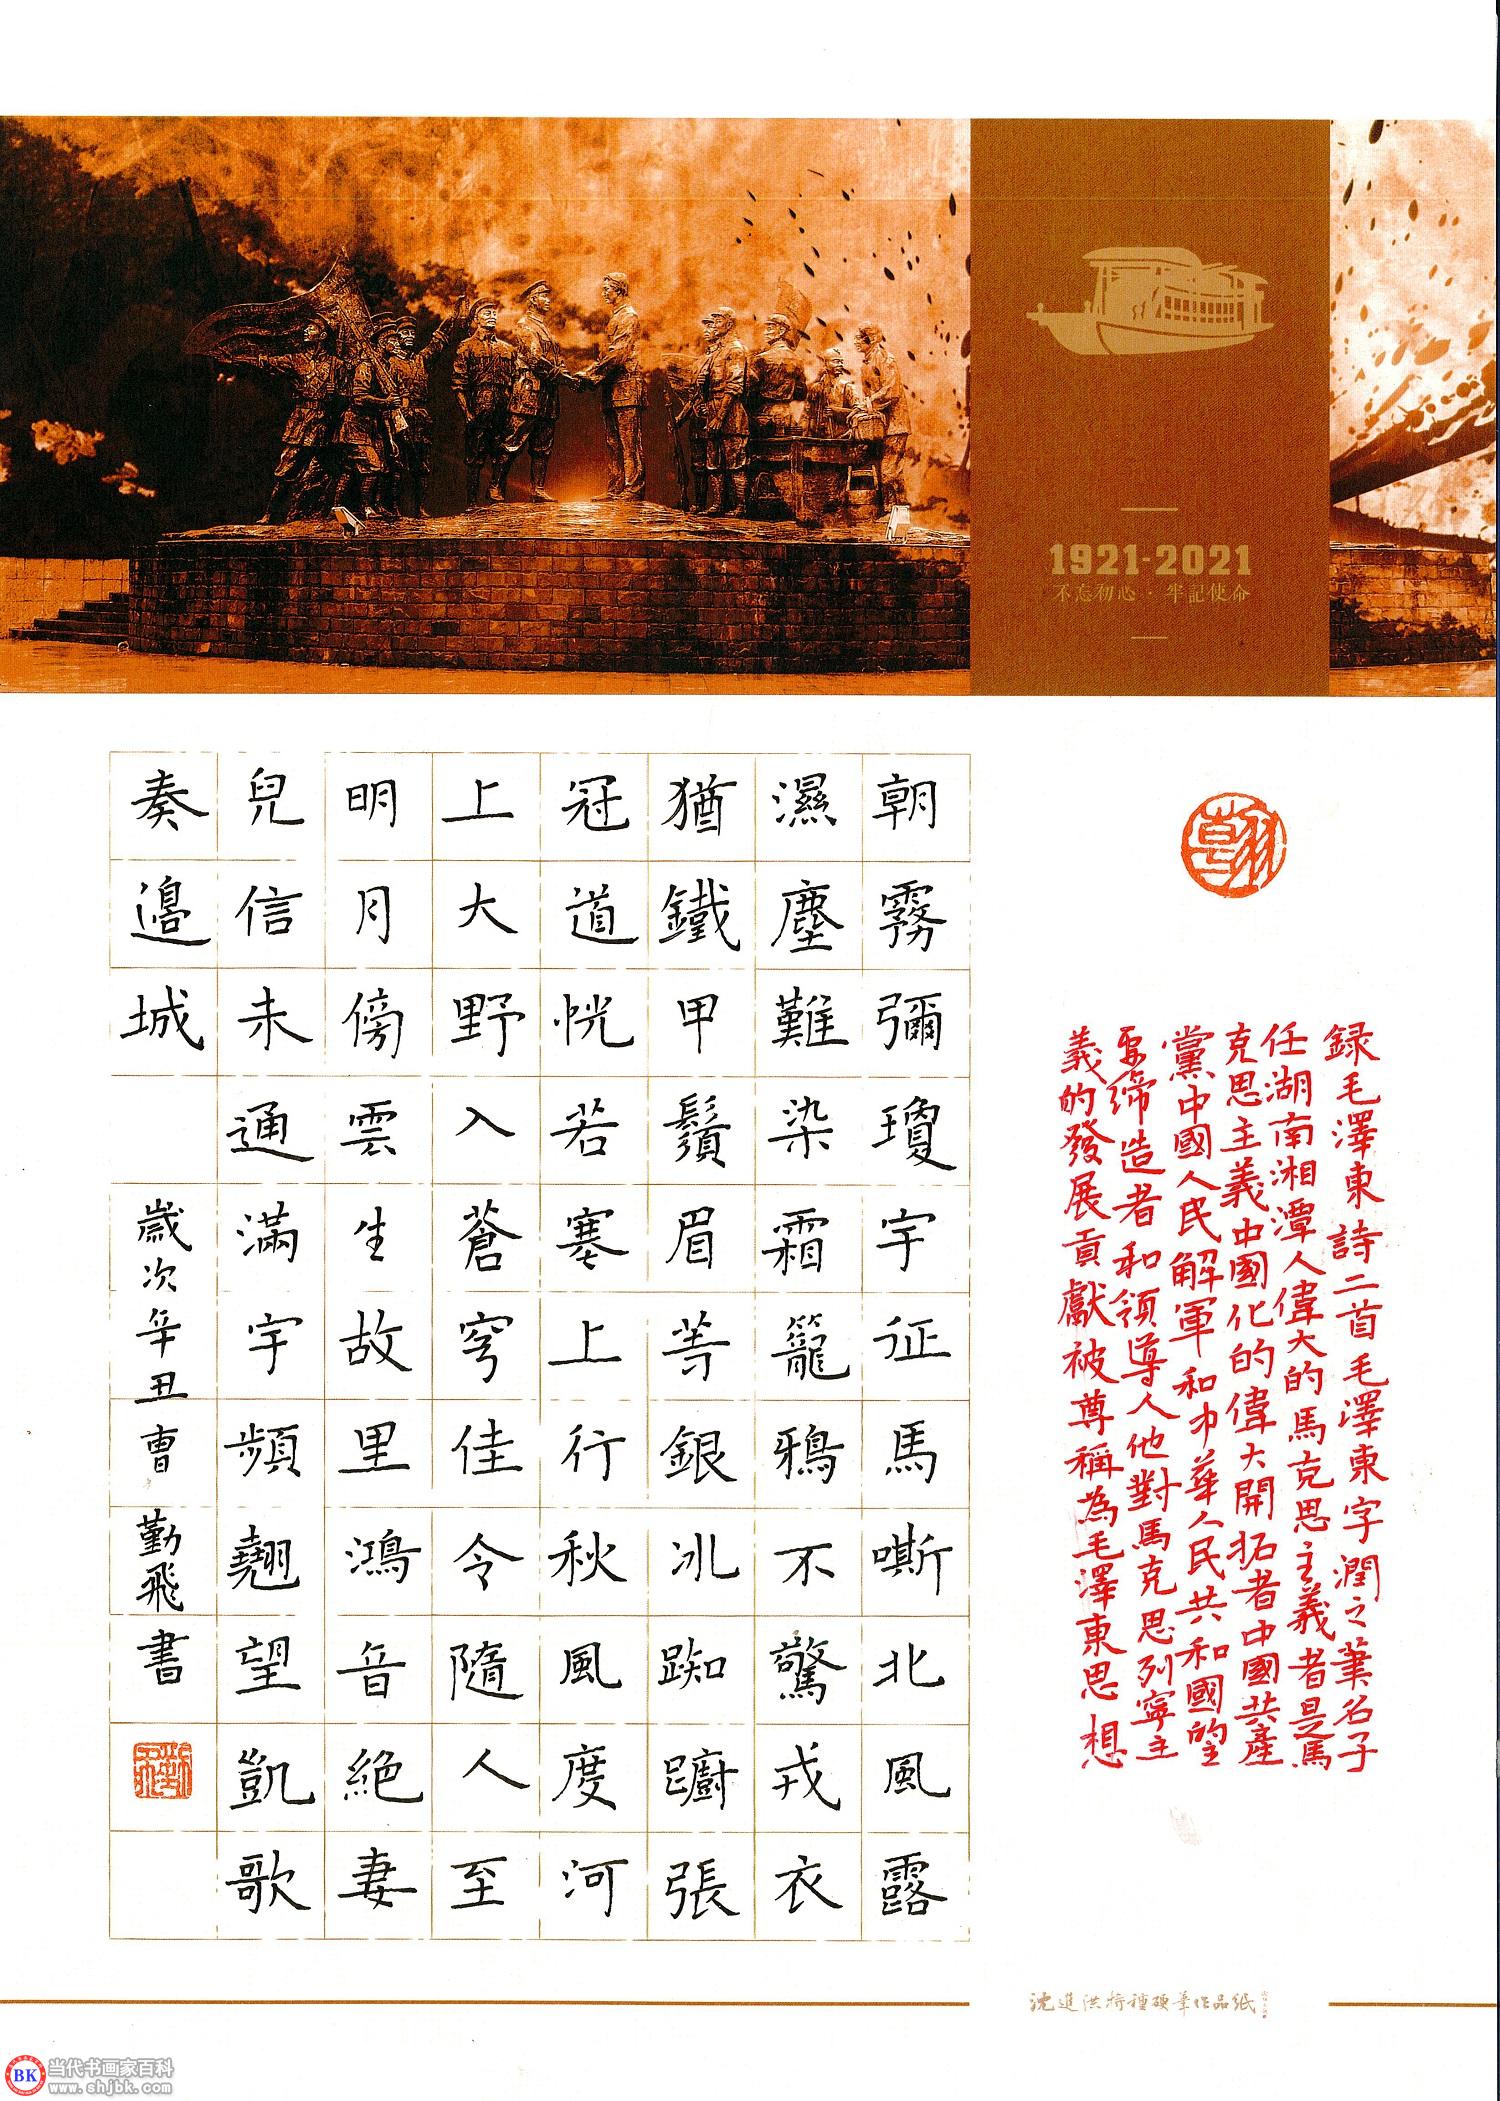 1921-2021
不忘初心·牢記使命
翰
録毛澤東詩二首毛澤東字潤之筆名子
任湖南湘潭人偉大的馬克思主義者是馬
克思主義中國化的偉大開拓者中國共產
黨中國人民解軍和中華人民共和國的主
要締造者和領導人他對馬克思列寧主
義的發展貢獻被尊稱為毛澤東思想
朝霧彌瓊宇征馬嘶北風露
濕塵難染霜籠鴉不驚戎衣
猶鐵甲鬚眉等銀冰踟躕張
冠道恍若塞上行秋風度河
上大野入蒼穹佳令隨人至
明月傍雲生故里鴻音絕妻
兒信未通滿宇頻翹望凱歌
奏邊城
歲次辛丑曹勤飛書
沈進洪特種硬筆作品紙
BK 当代书画家百科
www.shjbk.com